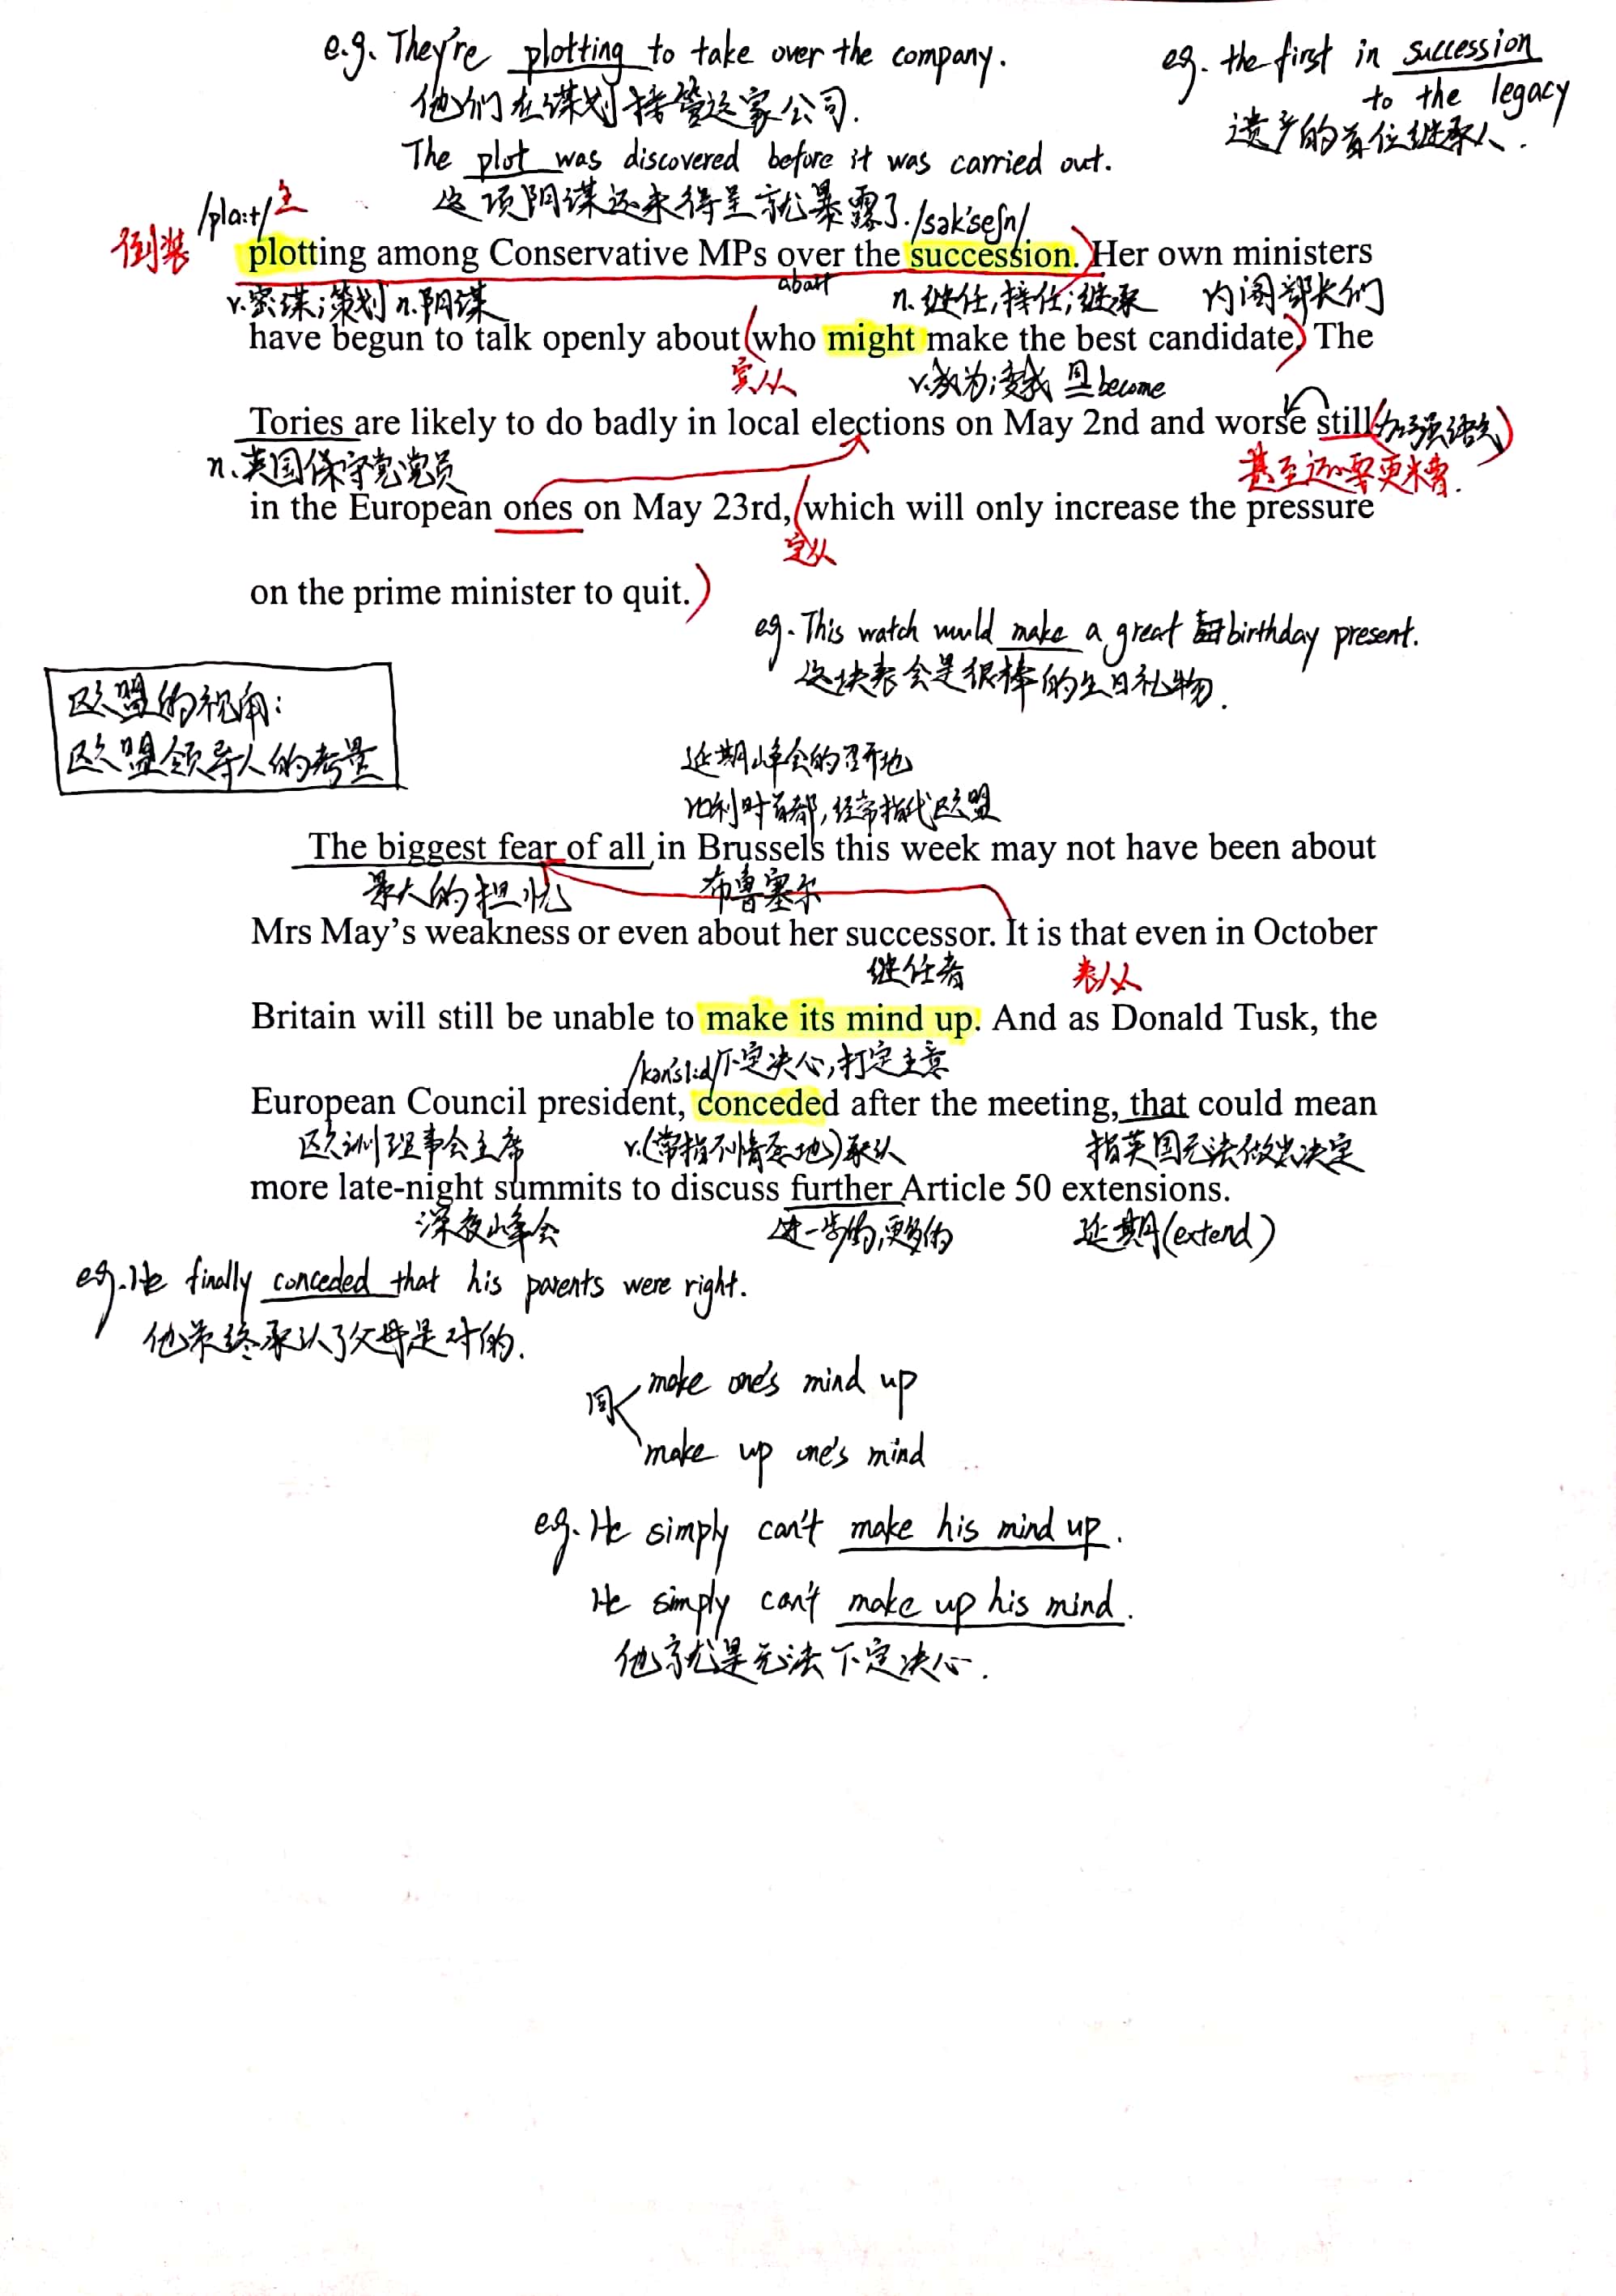 e.g. They're plotting to take over the company.
他们在谋划接管这家公司.
The plot was discovered before it was carried out.
这项阴谋还未得呈就暴露了.
eg. the first in succession
to the legacy
遗产的首位继承人.
倒装 /pla:t/ 主 /sək'seʃn/
plotting among Conservative MPs over the succession. Her own ministers
v.密谋;策划 n.阴谋 about n.继任,接任;继承 内阁部长们
have begun to talk openly about who might make the best candidate. The
宾从 v.成为;变成 同become
Tories are likely to do badly in local elections on May 2nd and worse still (加强语气)
n.英国保守党党员 甚至还要更糟.
in the European ones on May 23rd, which will only increase the pressure
定从
on the prime minister to quit.
eg. This watch would make a great birthday present.
这块表会是很棒的生日礼物.
欧盟的视角:
欧盟领导人的考量
延期峰会的召开地
比利时首都,经常指代欧盟
The biggest fear of all in Brussels this week may not have been about
最大的担忧 布鲁塞尔
Mrs May's weakness or even about her successor. It is that even in October
继任者 表从
Britain will still be unable to make its mind up. And as Donald Tusk, the
/kən'si:d/ 下定决心,打定主意
European Council president, conceded after the meeting, that could mean
欧洲理事会主席 v.(常指不情愿地)承认 指英国无法做出决定
more late-night summits to discuss further Article 50 extensions.
深夜峰会 进一步的,更多的 延期(extend)
eg. He finally conceded that his parents were right.
他最终承认了父母是对的.
同 make one's mind up
make up one's mind
eg. He simply can't make his mind up.
He simply can't make up his mind.
他就是无法下定决心.